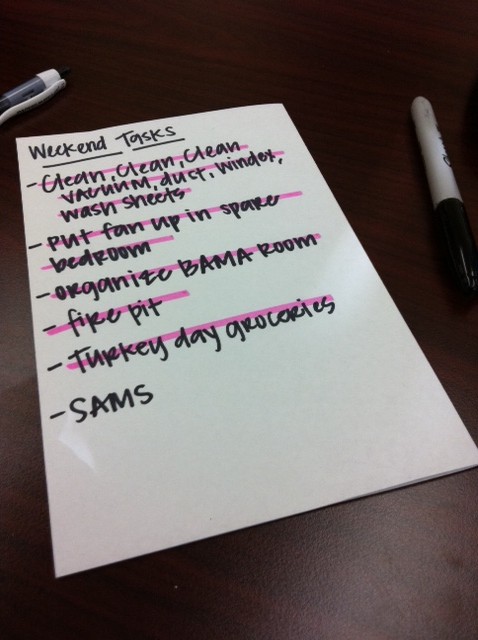 Weekend Tasks
- Clean, Clean, Clean
vacuum, dust, windex,
wash sheets
- Put fan up in spare
bedroom
- organize BAMA room
- fire pit
- Turkey day groceries
- SAMS